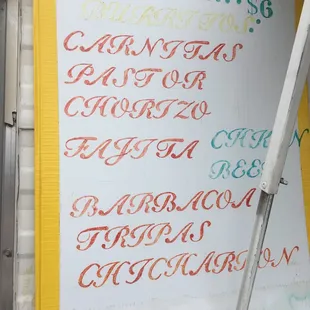 BURRITOS $6
CARNITAS
PASTOR
CHORIZO
FAJITA CHKEN
BEEF
BARBACOA
TRIPAS
CHICHARRON